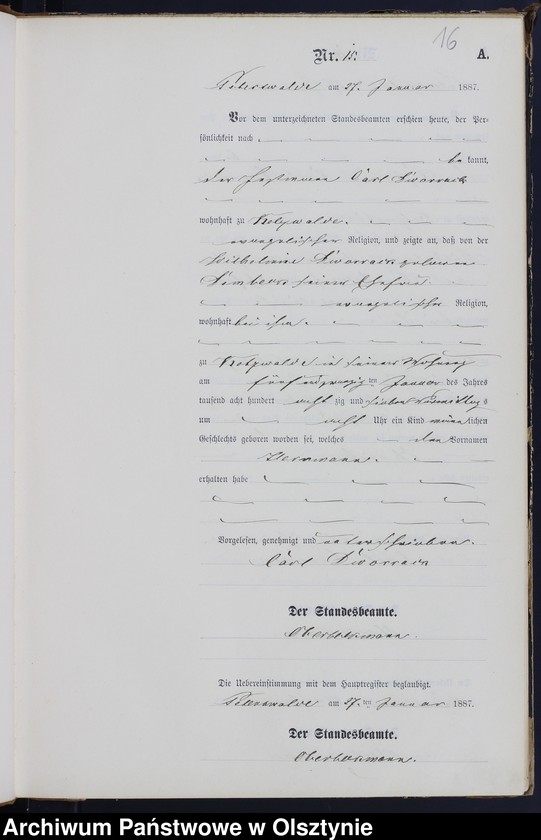 16
Nr. 15. A.
am 27. Januar 1887.
Vor dem unterzeichneten Standesbeamten erschien heute, der Per-
sönlichkeit nach
be kannt,
der Carl
wohnhaft zu
evangelischer Religion, und zeigte an, daß von der
Wilhelmine geborene
seiner Ehefrau
evangelischer Religion,
wohnhaft bei ihm.
zu in seiner Wohnung
am fünfundzwanzig ten Januar des Jahres
tausend acht hundert acht zig und sieben Vormittags
um acht Uhr ein Kind männlichen
Geschlechts geboren worden sei, welches den Vornamen
Hermann.
erhalten habe
Vorgelesen, genehmigt und unterschrieben.
Carl
Der Standesbeamte.
Die Uebereinstimmung mit dem Hauptregister beglaubigt.
am 27. ten Januar 1887.
Der Standesbeamte.
Archiwum Państwowe w Olsztynie